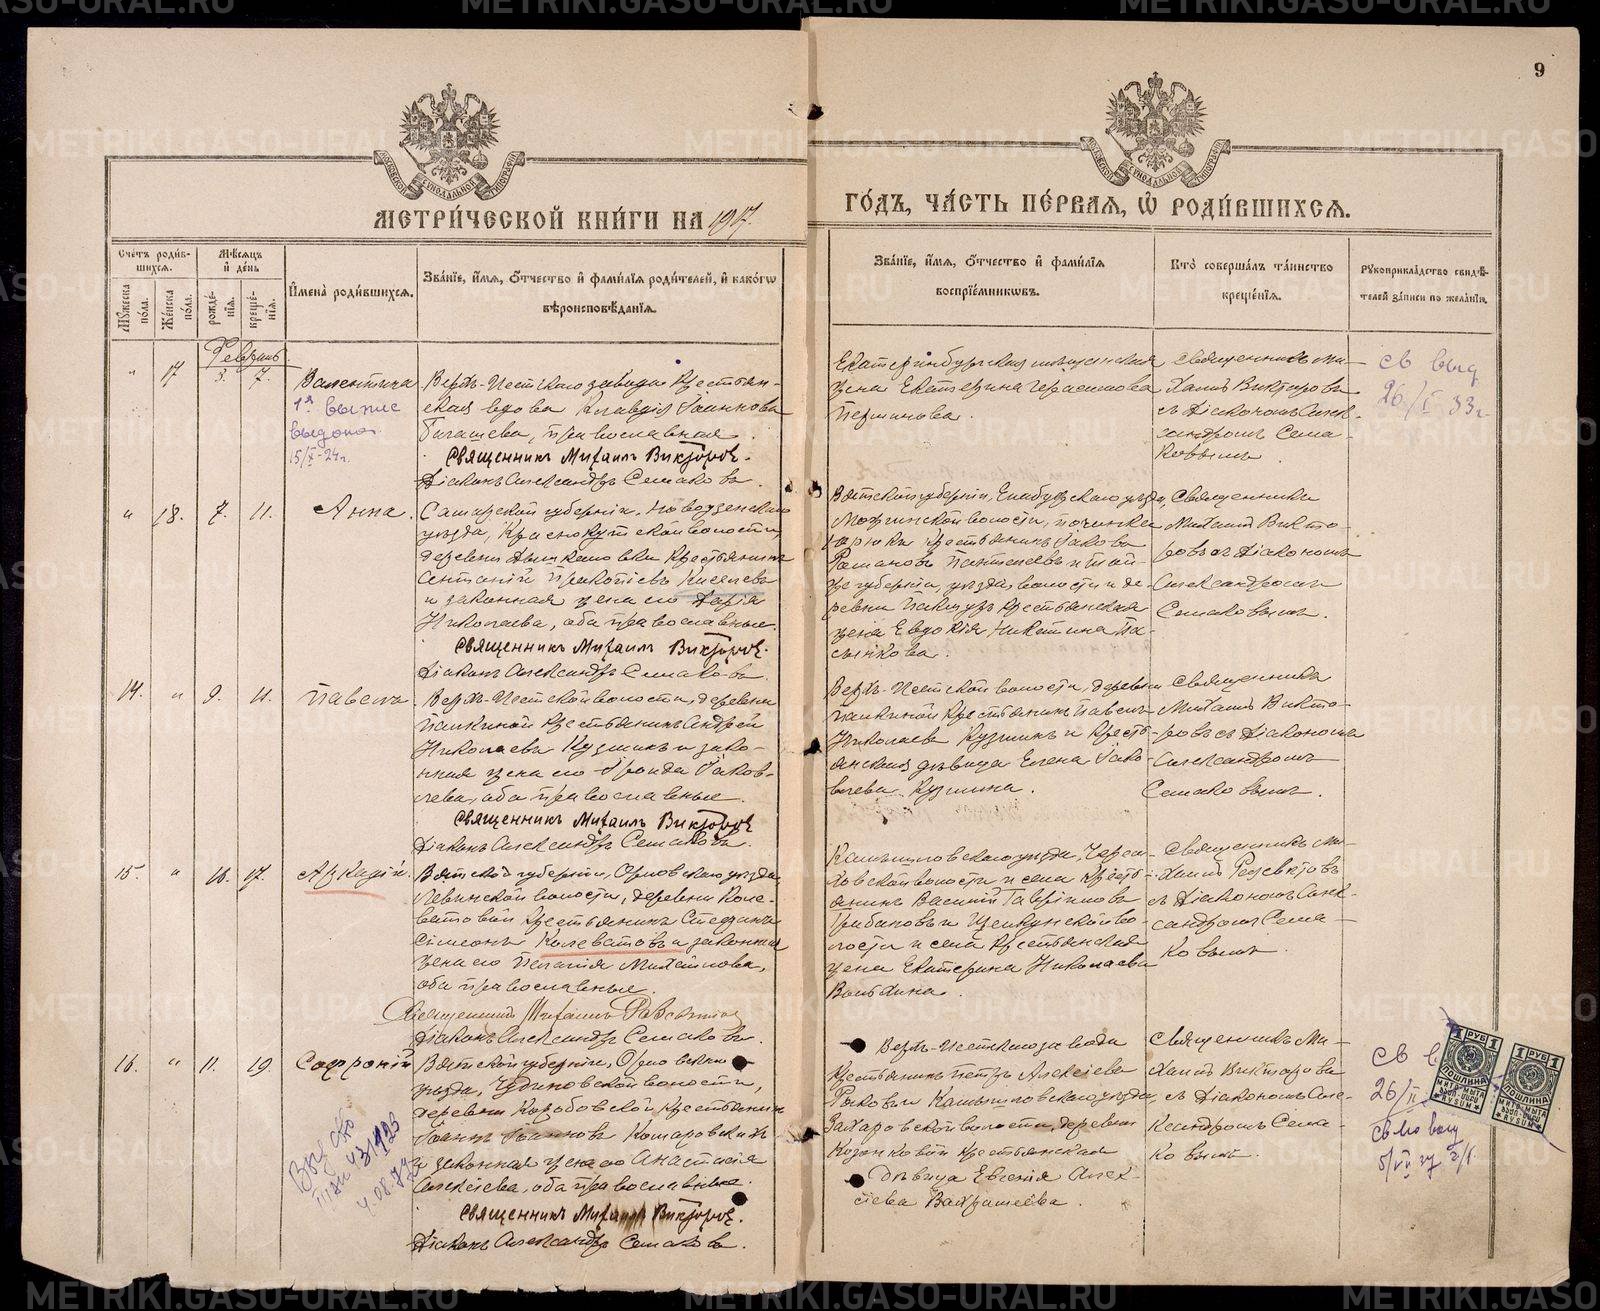 9
МОСКОВСКОЙ СѴНОДАЛЬНОЙ ТИПОГРАФІИ
МОСКОВСКОЙ СѴНОДАЛЬНОЙ ТИПОГРАФІИ
МЕТРИ́ЧЕСКОЙ КНИ́ГИ НА 1917
ГО́ДЪ, ЧА́СТЬ ПЕ́РВАЯ, Ѡ РОДИ́ВШИХСЯ.
Сче́тъ роди́в-
шихся.
Му́жеска по́ла.
Же́нска по́ла.
Мѣ́сяцъ
и де́нь
рожде́-
нія.
креще́-
нія.
Имена̀ роди́вшихся.
Зва́ніе, и́мя, о́тчество и фами́лія роди́телей, и како́гѡ
вѣроисповѣ́данія.
Зва́ніе, и́мя, о́тчество и фами́лія
воспрїе́мниковъ.
Кто̀ соверша́лъ та́инство
креще́нія.
Рукоприкла́дство свидѣ́-
телей за́писи по жела́нію.
Февраль
" 17 3. 7.
Валентина
1я выпис
выдана
15/X-24г.
Верхъ-Исетскаго завода крестьян-
ская вдова Клавдія Іоаннова
Тигашева, православная.
Священникъ Михаилъ Викторовъ.
Діаконъ Александръ Семаковъ.
Екатеринбургская мѣщанская
жена Екатерина Герасимова
Першинова.
Священникъ Ми-
хаилъ Викторовъ
съ діакономъ Алек-
сандромъ Сема-
ковымъ.
св выд
26/I 33г
" 18. 7. 11.
Анна.
Самарской губерніи, Новоузенскаго
уѣзда, Краснокутской волости,
деревни крестьянинъ
Антоній Прокопіевъ Киселевъ
и законная жена его Дарія
Николаева, оба православные.
Священникъ Михаилъ Викторовъ.
Діаконъ Александръ Семаковъ.
Вятской губерніи, Елабужскаго уѣзда,
Можгинской волости, починка
крестьянинъ Іаковъ
Романовъ Пантелеевъ и той
же губерніи, уѣзда, волости и де-
ревни крестьянская
жена Евдокія Никитина Па-
сынкова.
Священникъ
Михаилъ Викто-
ровъ съ діакономъ
Александромъ
Семаковымъ.
14. " 9. 11.
Павелъ.
Верхъ-Исетской волости, деревни
Палкиной крестьянинъ Андрей
Николаевъ Кузминъ и зако-
нная жена его Ираида Іаков-
лева, оба православные.
Священникъ Михаилъ Викторовъ
Діаконъ Александръ Семаковъ.
Верхъ-Исетской волости, деревни
Палкиной крестьянинъ Павелъ
Николаевъ Кузминъ и кресть-
янская дѣвица Елена Іако-
влева Кузмина.
Священникъ
Михаилъ Викто-
ровъ съ діакономъ
Александромъ
Семаковымъ.
15. " 16. 17.
Аркадій.
Вятской губерніи, Орловскаго уѣзда,
Левинской волости, деревни Коле-
ватовой крестьянинъ Стефанъ
Сімеонъ Колеватовъ и законная
жена его Пелагія Михайлова,
оба православные.
Священникъ Михаилъ
Діаконъ Александръ Семаковъ.
Камышловскаго уѣзда,
волости и села кресть-
янинъ Василій Гавріиловъ
Грибановъ и во-
лости и села крестьянская
жена Екатерина Николаева
Священникъ Ми-
хаилъ
съ діакономъ Алек-
сандромъ Сема-
ковымъ.
16. " 11. 19.
Софроній
Вятской губерніи, Орловскаго
уѣзда, Чудиновской волости,
деревни Коробовской крестьянинъ
Іоаннъ Іоанновъ Комаровскихъ
и законная жена его Анастасія
Алексіева, оба православные.
Священникъ Михаилъ Викторовъ.
Діаконъ Александръ Семаковъ.
Верхъ-Исетскаго завода
крестьянинъ Петръ Алексіевъ
Рыковъ и Камышловскаго уѣзда,
Захаровской волости, деревни
Казаковой крестьянская
дѣвица Евгенія Алек-
сіева Вахрамеева.
Священникъ Ми-
хаилъ Викторовъ
съ діакономъ Але-
ксандромъ Сема-
ковымъ.
св в
26/II
1 РУБ 1
ПОШЛИНА
1 РУБ 1
ПОШЛИНА
METRIKI.GASO-URAL.RU